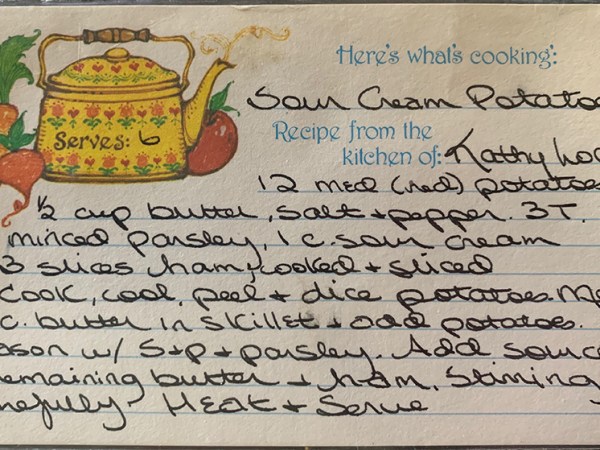 Here's what's cooking:
Sour Cream Potatoe
Serves: 6
Recipe from the
kitchen of: Kathy
12 med (red) potatoes
1/2 cup butter, salt + pepper. 3T.
minced parsley, 1 c. sour cream
3 slices ham, cooked + sliced
Cook, cool, peel + dice potatoes. Me
c. butter in skillet + add potatoes.
ason w/ S+p + parsley. Add sour
emaining butter + ham. Stirring
efully Heat + Serve